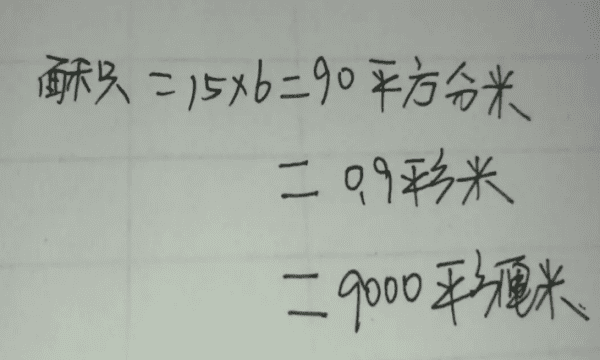 面积 =15×6=90平方分米
=0.9平方米
=9000平方厘米